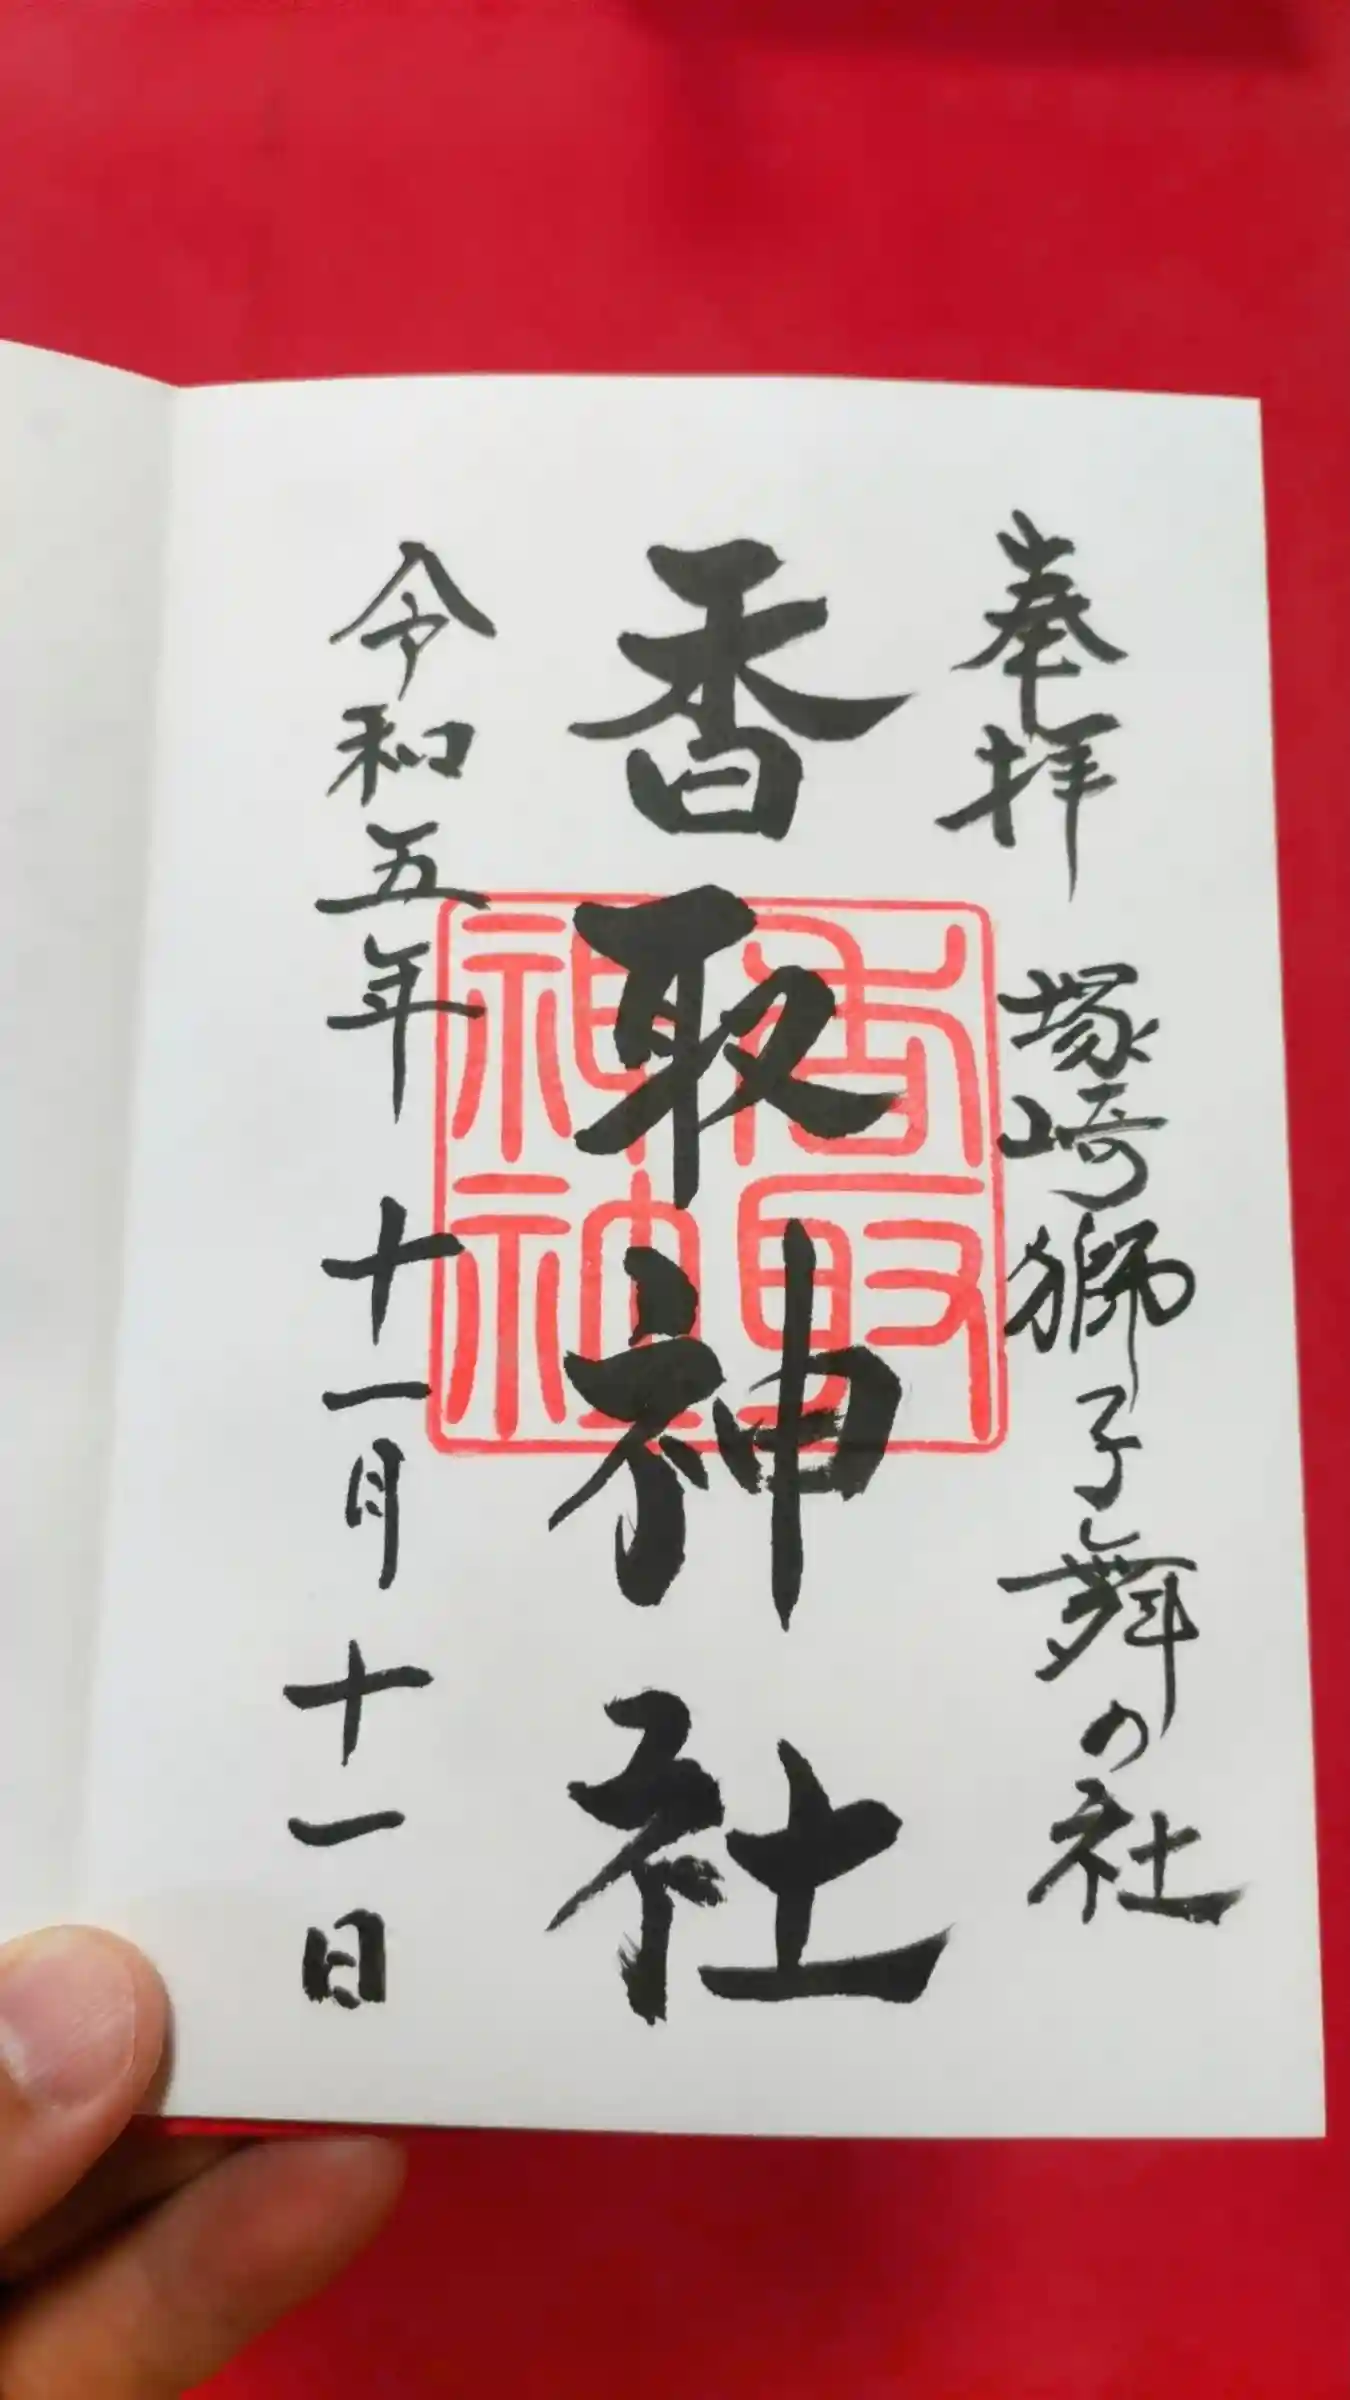 奉拝
塚崎獅子舞の社
香取神社
令和五年十一月十一日
香取
神社